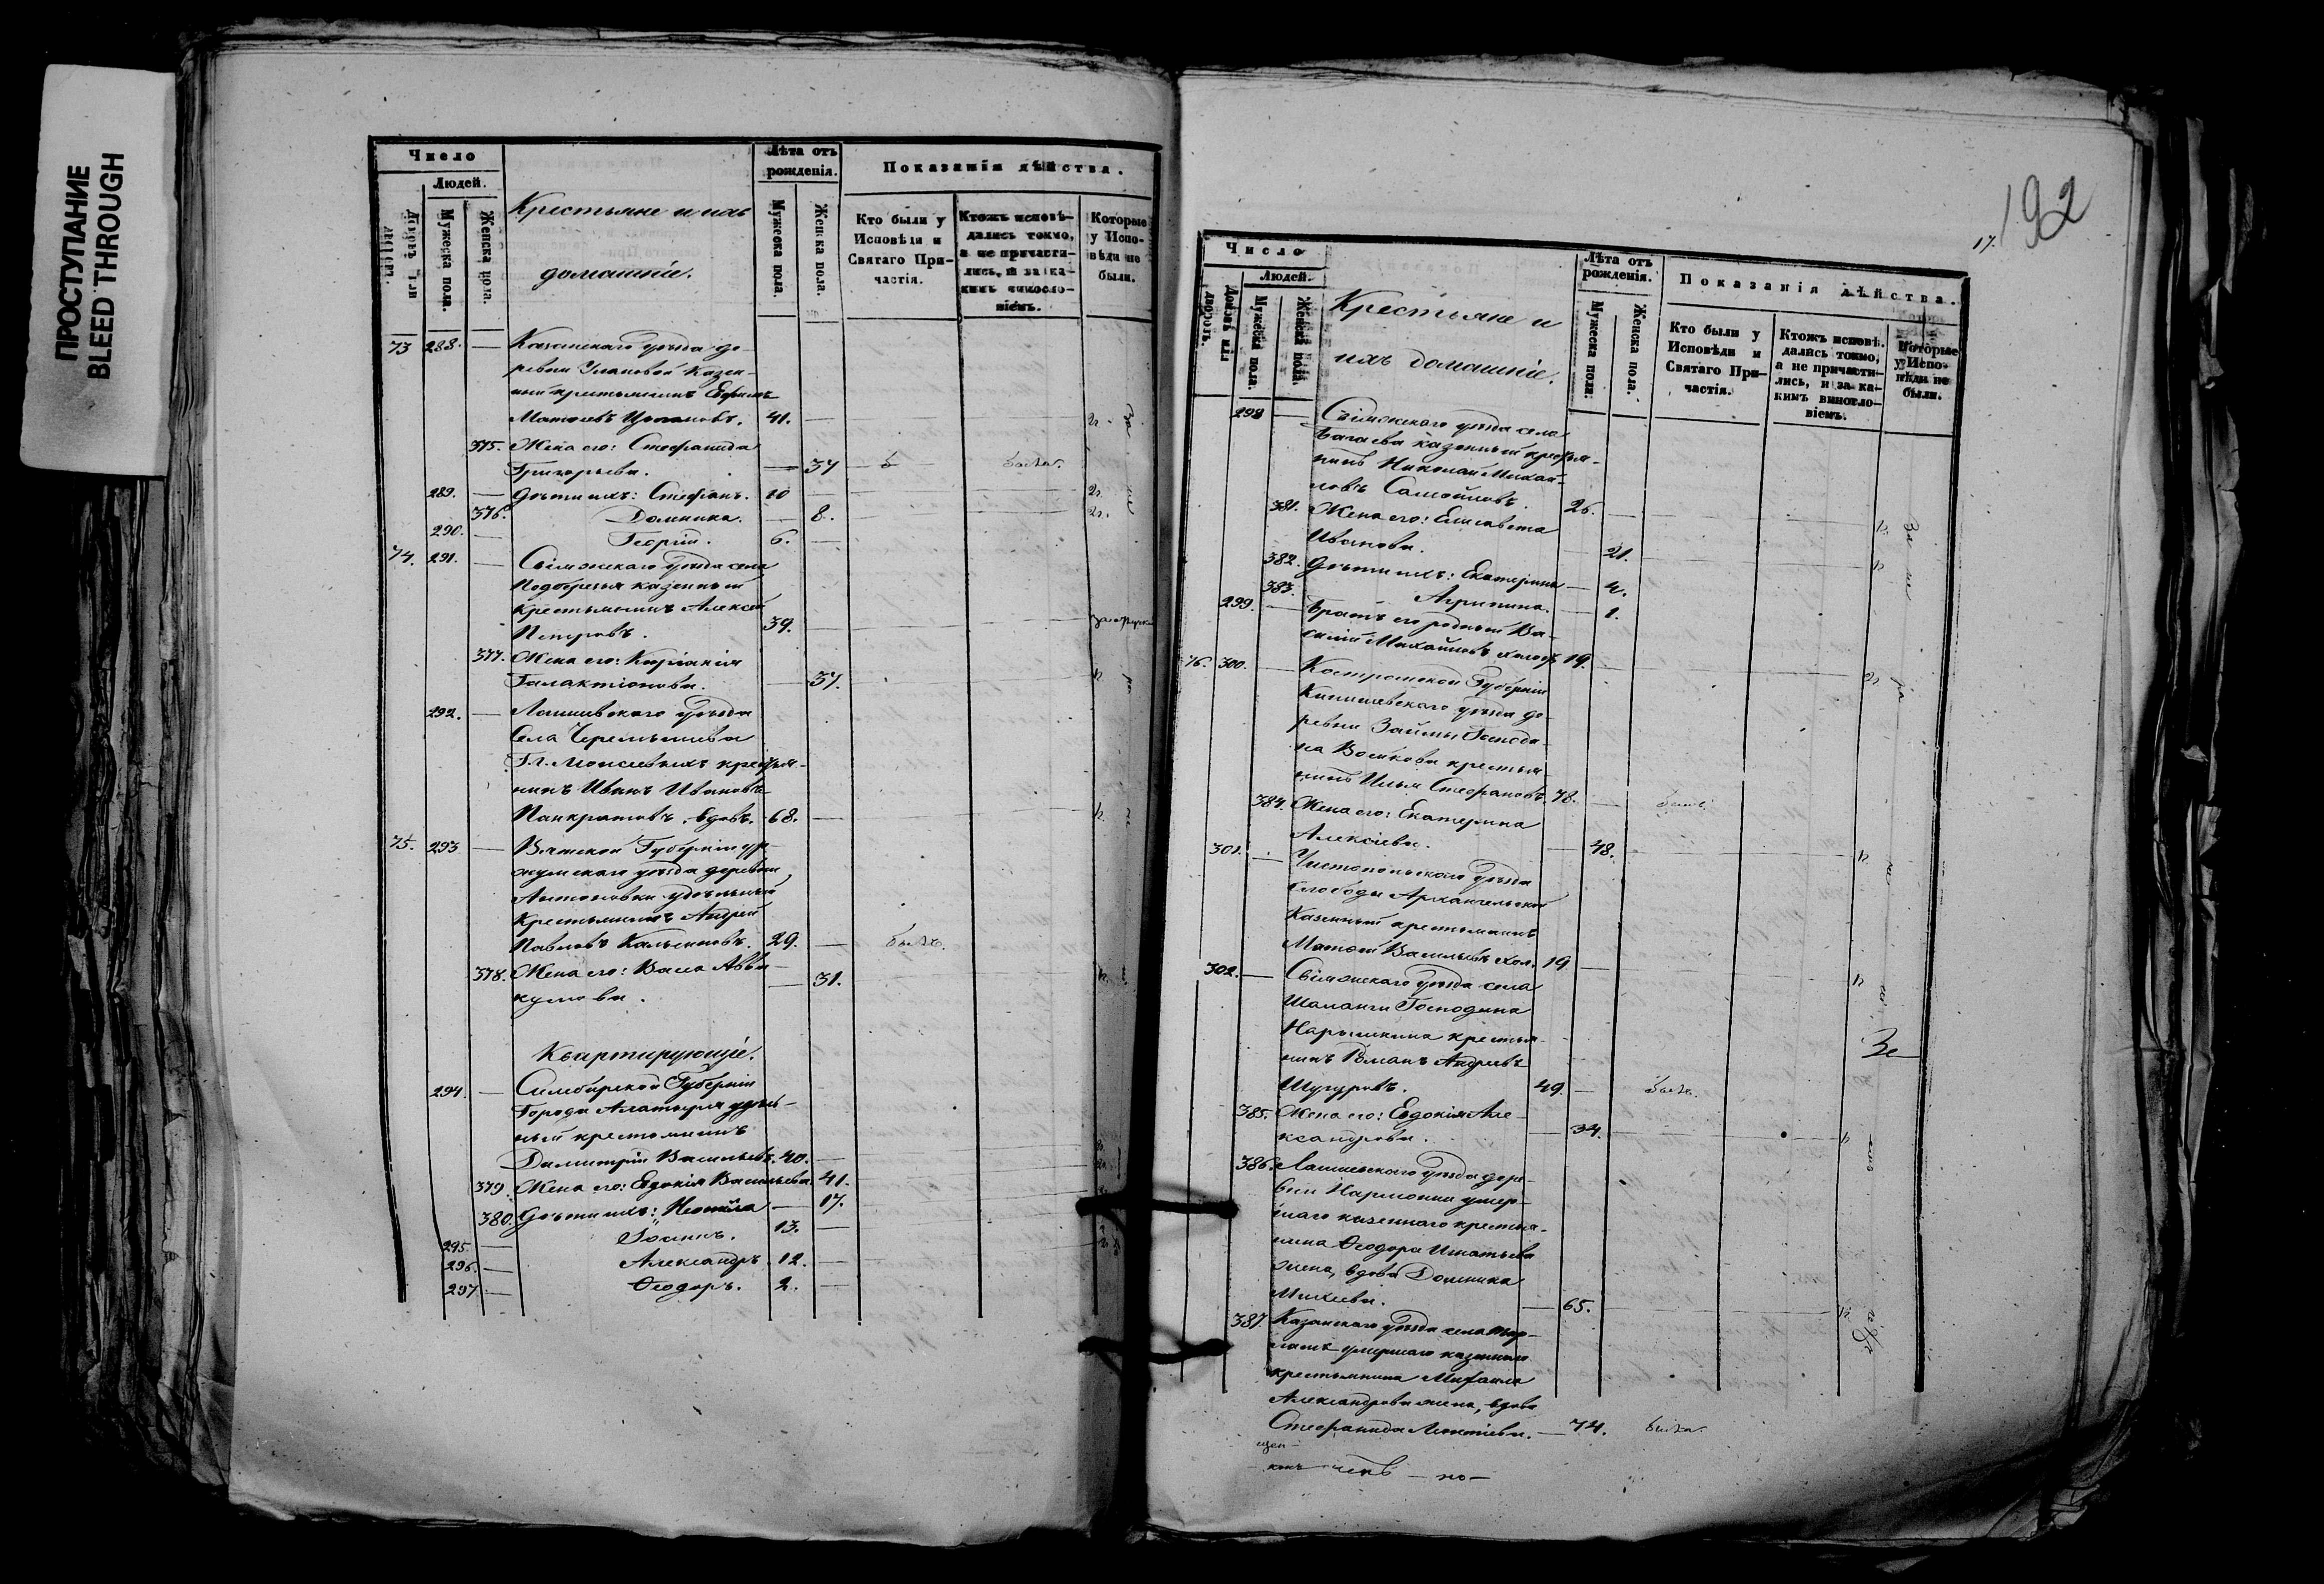 ПРОСТУПАНИЕ
BLEED THROUGH
Число
Людей.
Мужеска пола.
Женска пола.
Крестьяне и ихъ
домашніе.
Лѣта отъ
рожденія.
Мужеска пола.
Женска пола.
Показанія дѣйства.
Кто были у
Исповѣди и
Святаго При-
частія.
Ктожъ исповѣ-
дались токмо,
а не причасти-
лись, и за ка-
кимъ винословіемъ.
Которые
у Испо-
вѣди не
были.
73 288. — Казанскаго уѣзда де-
ревни Улановой казен-
ный крестьянинъ Ефримъ
Матвѣевъ 41.
375. Жена его: Стефанида
Григорьева. — 37
289. — Дѣти ихъ: Стефанъ. 10
376. Домника. — 8.
290. — Георгій. 6.
74. 291. — Свіяжскаго уѣзда села
Подберезья казенный
крестьянинъ Алексѣй
Петровъ. 39.
377. Жена его: Киріакія
Галактіонова. — 37.
292. — Лаишевскаго уѣзда
Села Черемышева
Г.г. Моисеевыхъ крестья-
нинъ Иванъ Ивановъ
Панкратовъ, вдовъ. 68.
75. 293 — Вятской Губерніи ур-
жумскаго уѣзда деревни
Антоновки удѣльный
Крестьянинъ Андрей
Павловъ 29. — былъ.
378. Жена его: Васса Авва-
кумова. — 31.
Квартирующіе.
294. — Симбирской Губерніи
Города Алатыря удѣль-
ный крестьянинъ
Димитрій Васильевъ. 40.
379. Жена его: Евдокія Васильева 41.
380. Дѣти ихъ: Неонила — 17.
295. — Іоаннъ. 13.
296. — Александръ 12.
297. — Ѳеодоръ. 2.
17.
192
Число
Людей.
Домовъ или
дворовъ.
Мужеска пола.
Женска пола.
Крестьяне и
ихъ домашніе.
Лѣта отъ
рожденія.
Мужеска пола.
Женска пола.
Показанія дѣйства.
Кто были у
Исповѣди и
Святаго При-
частія.
Ктожъ исповѣ-
дались токмо,
а не причасти-
лись, и за ка-
кимъ винословіемъ.
Которые
у Испо-
вѣди не
были.
298 — Свіяжскаго уѣзда села
Багаева казенный крестья-
нинъ Николай Михай-
ловъ Самойловъ. 26.
381. Жена его: Елисавета
Иванова. 21.
382. Дѣти ихъ: Екатерина — 4.
383. Агрипина. — 1.
299. — Братъ его родный Ва-
силій Михайловъ холостъ 19.
76. 300. — Костромской Губерніи
Кинешевскаго уѣзда де-
ревни Займы Господи-
на Воейкова крестья-
нинъ Илья Стефановъ. 78. — былъ.
384. Жена его: Екатерина
Алексіева. — 48.
301. — Чистопольскаго уѣзда
слободы Архангельской
Казенный крестьянинъ
Матвѣй Васильевъ хол. 19.
302. — Свіяжскаго уѣзда села
Шаланги Господина
Нарышкина крестья-
нинъ Романъ Андреевъ
Шугуровъ. 49. — былъ.
385. Жена его: Евдокія Але-
ксандрова. — 34.
386. Лаишевскаго уѣзда дере-
вни Нармонки умер-
шаго казеннаго крестья-
нина Ѳеодора Игнатьева
жена, вдова Домника
Михеева. — 65.
387. Казанскаго уѣзда села
умершаго казеннаго
крестьянина Михаила
Александрова жена, вдова
Стефанида Леонтіева. — 74. была.